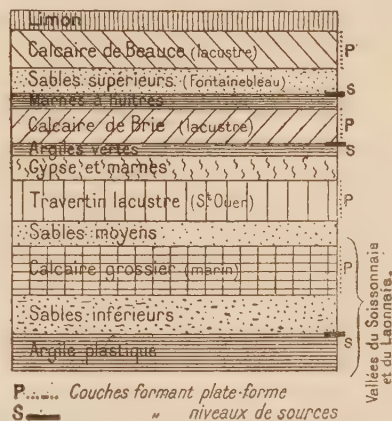 Limon
Calcaire de Beauce (lacustre) P
Sables supérieurs (Fontainebleau)
S
Marnes à huîtres
Calcaire de Brie (lacustre) P
Argiles vertes S
Gypse et marnes
Travertin lacustre (St Ouen) P
Sables moyens
Calcaire grossier (marin) P
Sables inférieurs
Argile plastique S
Vallées du Soissonnais
et du Laonnais.
P...... Couches formant plate-forme
S " niveaux de sources